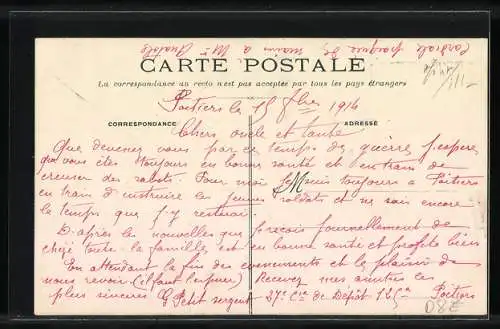 Cordiale poignée de mains à Mr Anatole
CARTE POSTALE
La correspondance au recto n'est pas acceptée par tous les pays étrangers
Poitiers le 15 9bre 1914
CORRESPONDANCE
ADRESSÉ
Chers oncle et tante
Que devenez vous par ce temps de guerre j'espere
que vous êtes toujours en bonne santé et en train de
creuser des sabots. Pour moi je suis toujours a Poitiers
en train d'instruire les jeunes soldats et ne sais encore
le temps que j'y resterai.
D'après les nouvelles que je recois journellement de
chez toute la famille est en bonne santé et profite bien
En attendant la fin des evenements et le plaisir de
nous revoir (il faut l'esperer) Recevez mes amitiés les
plus sinceres G Petit sergent 27e Cie de Dépôt 125e Poitiers
08E